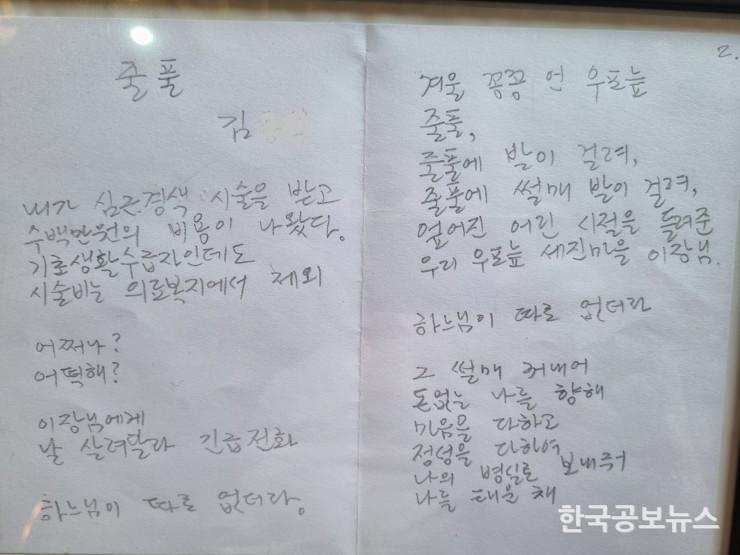 줄풀
김
내가 심근경색 시술을 받고
수백만원의 비용이 나왔다.
기초생활수급자인데도
시술비는 의료복지에서 제외
어쩌나?
어떡해?
이장님에게
날 살려달라 긴급전화
하느님이 따로 없더라.
2.
겨울 꽁꽁 언 우포늪
줄풀,
줄풀에 발이 걸려,
줄풀에 썰매 발이 걸려,
엎어진 어린 시절을 들려준
우리 우포늪 세진마을 이장님.
하느님이 따로 없더라
그 썰매 꺼내어
돈없는 나를 향해
마음을 다하고
정성을 다하여
나의 병실로 보내주어
나를 태운 채
한국공보뉴스